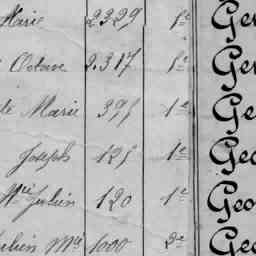 Marie 2.329 1e Ge
Octave 2.317 1e Ge
le Marie 391 1e Ge
Joseph 121 1e Geo
Mie Julien 120 1e Geo
Julien Mie 1000 2e Geo